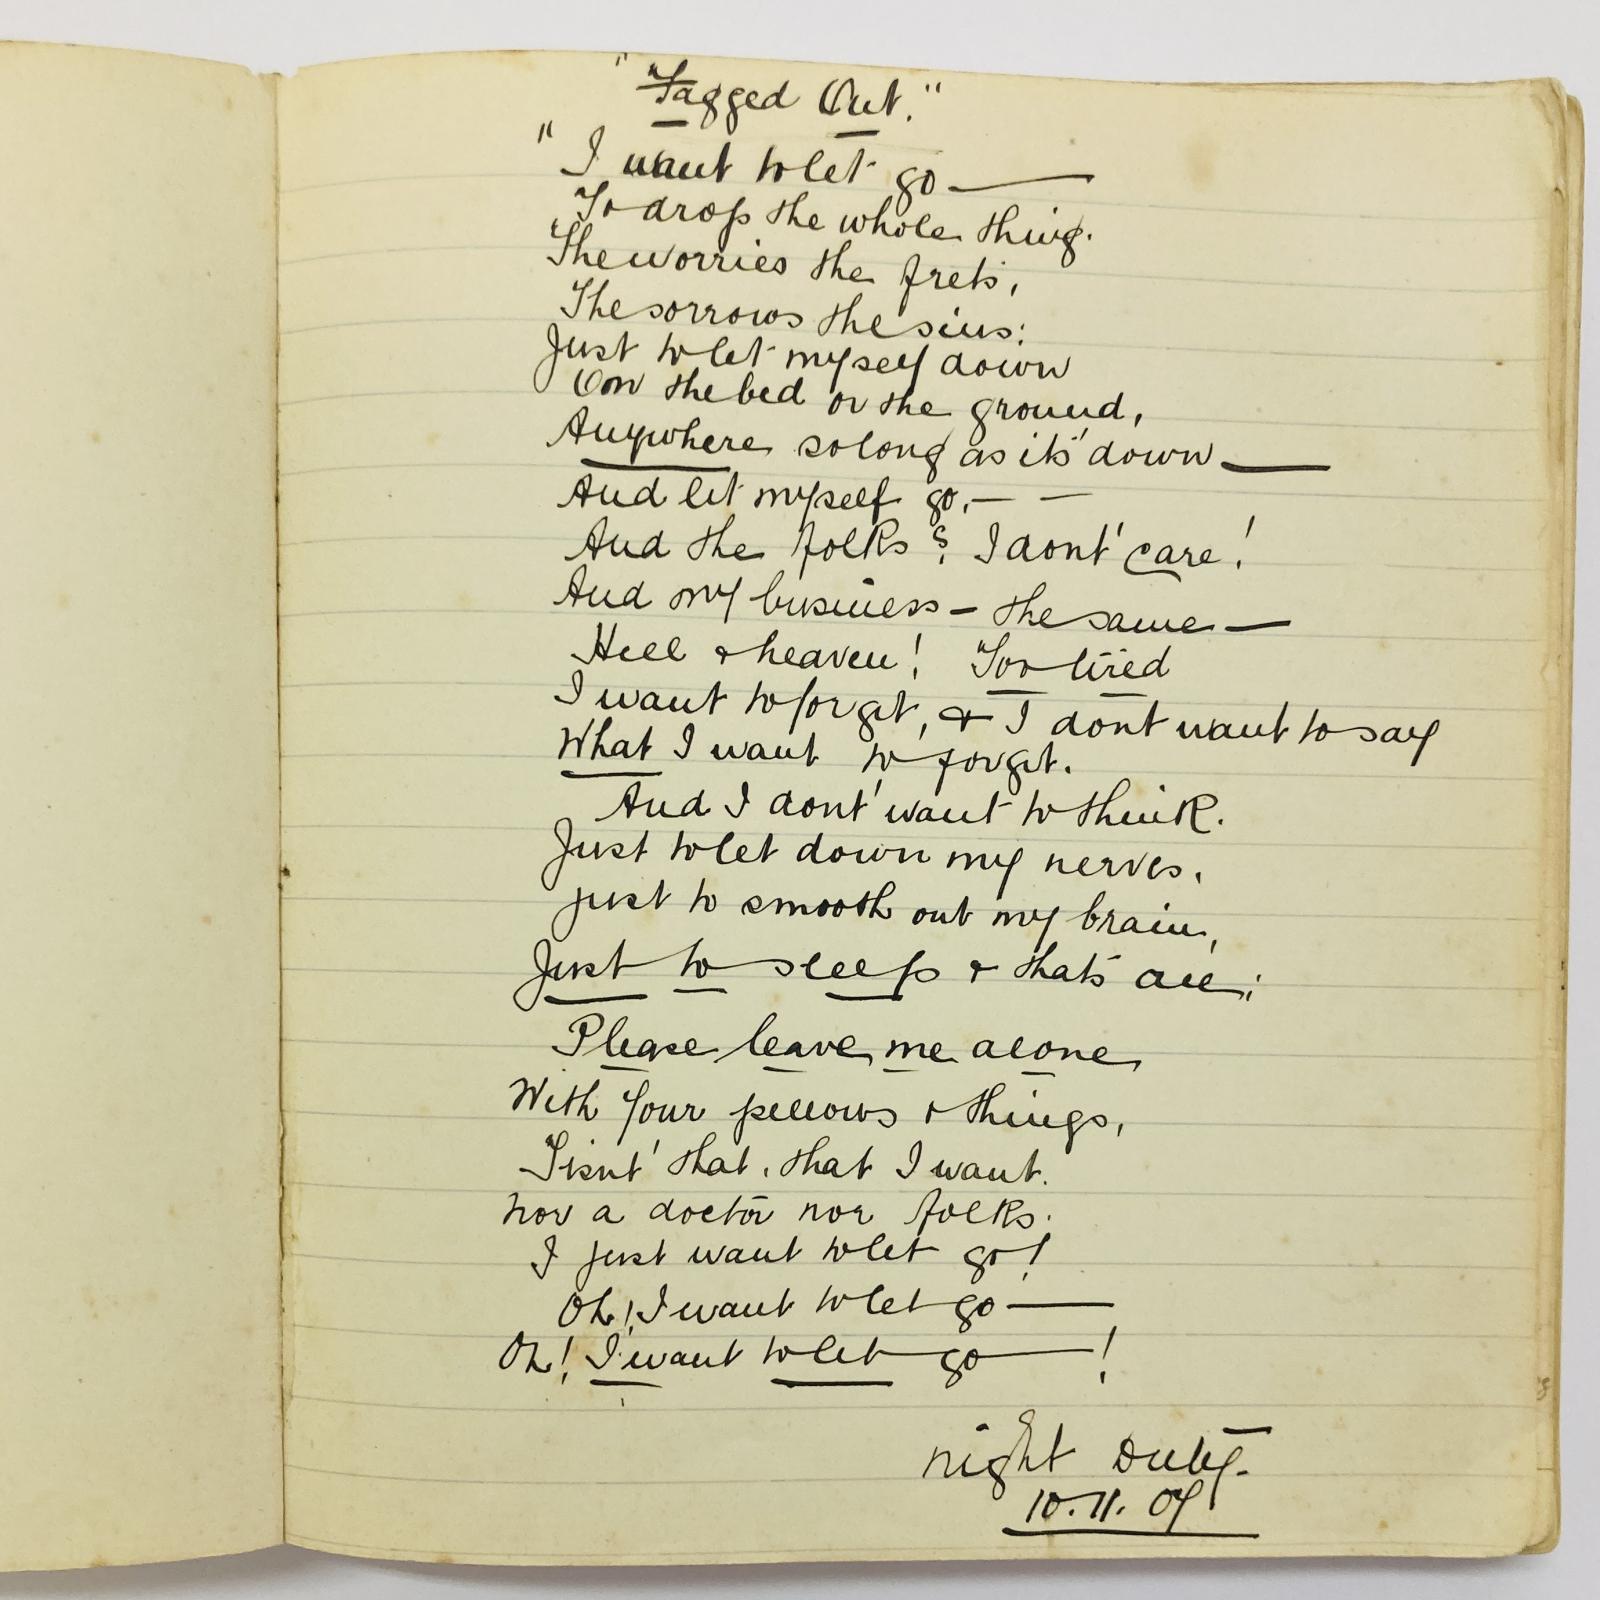 "Fagged Out."
"I want to let go —
To drop the whole thing.
The worries the frets,
The sorrows the sins:
Just to let myself down
On the bed or the ground,
Anywhere so long as its' down —
And let myself go. — —
And the folks? I dont' care!
And my business — the same —
Hell & heaven! Too tired
I want to forget, & I dont want to say
What I want to forget.
And I dont' want to think.
Just to let down my nerves,
just to smooth out my brain,
Just to sleep & that's all;
Please leave me alone,
With your pillows & things,
T'isnt' that, that I want.
nor a doctor nor folks.
I just want to let go!
Oh! I want to let go —
Oh! I want to let go — !
night Duty.
10.11.07